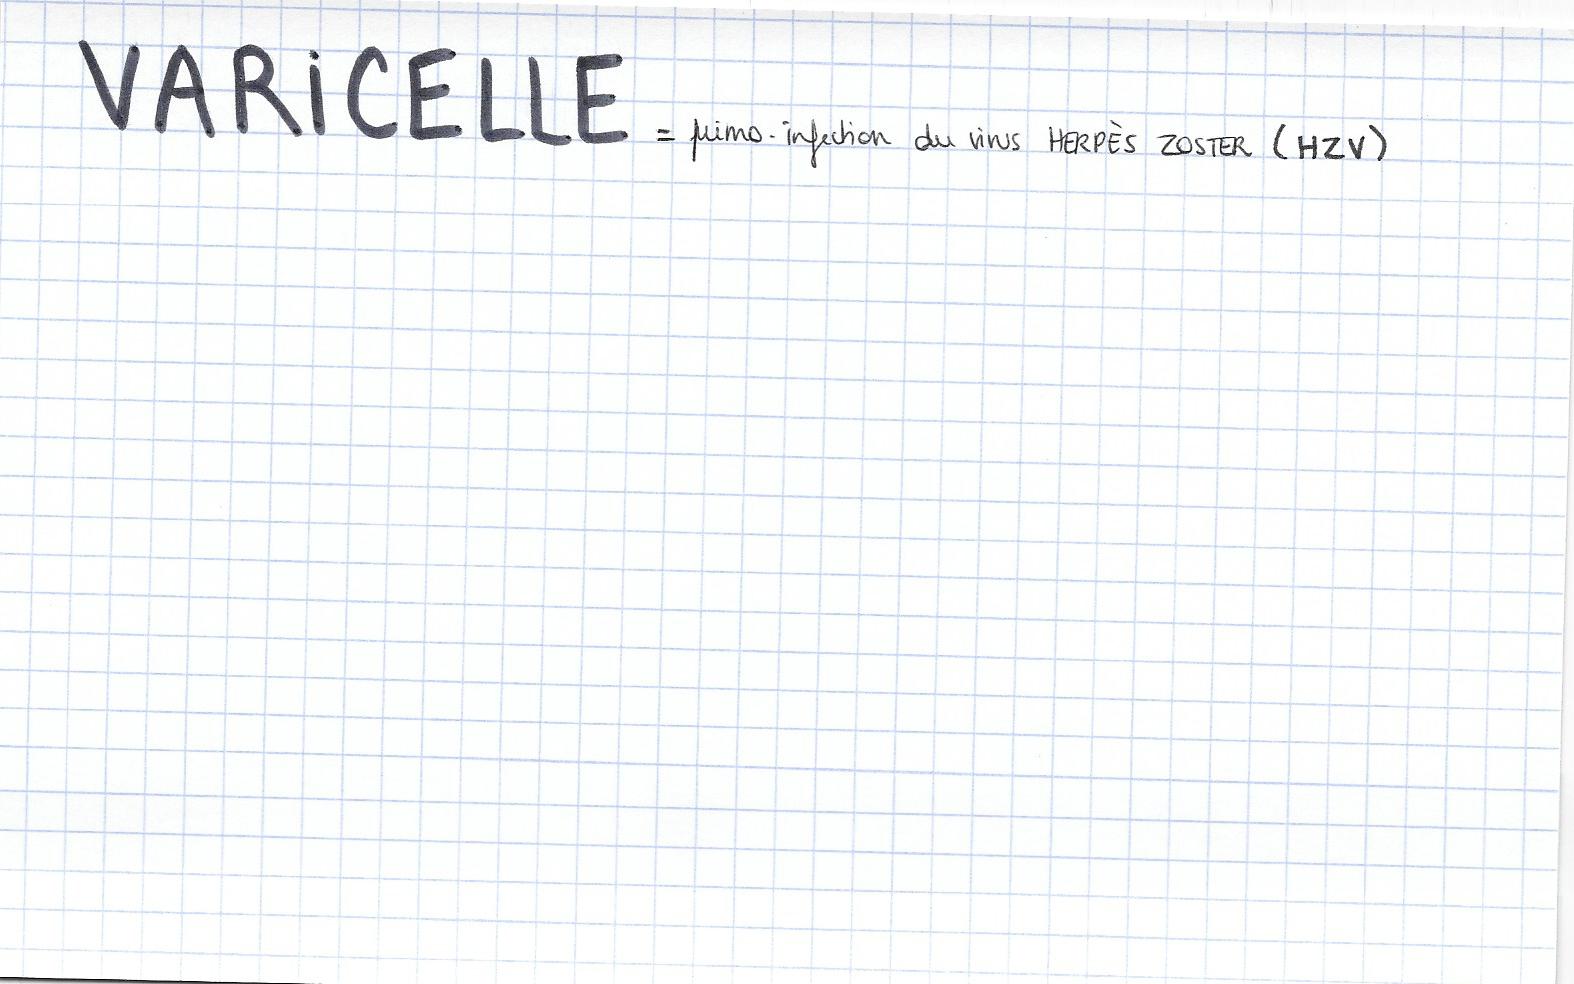 VARiCELLE = primo-infection du virus HERPÈS ZOSTER (HZV)